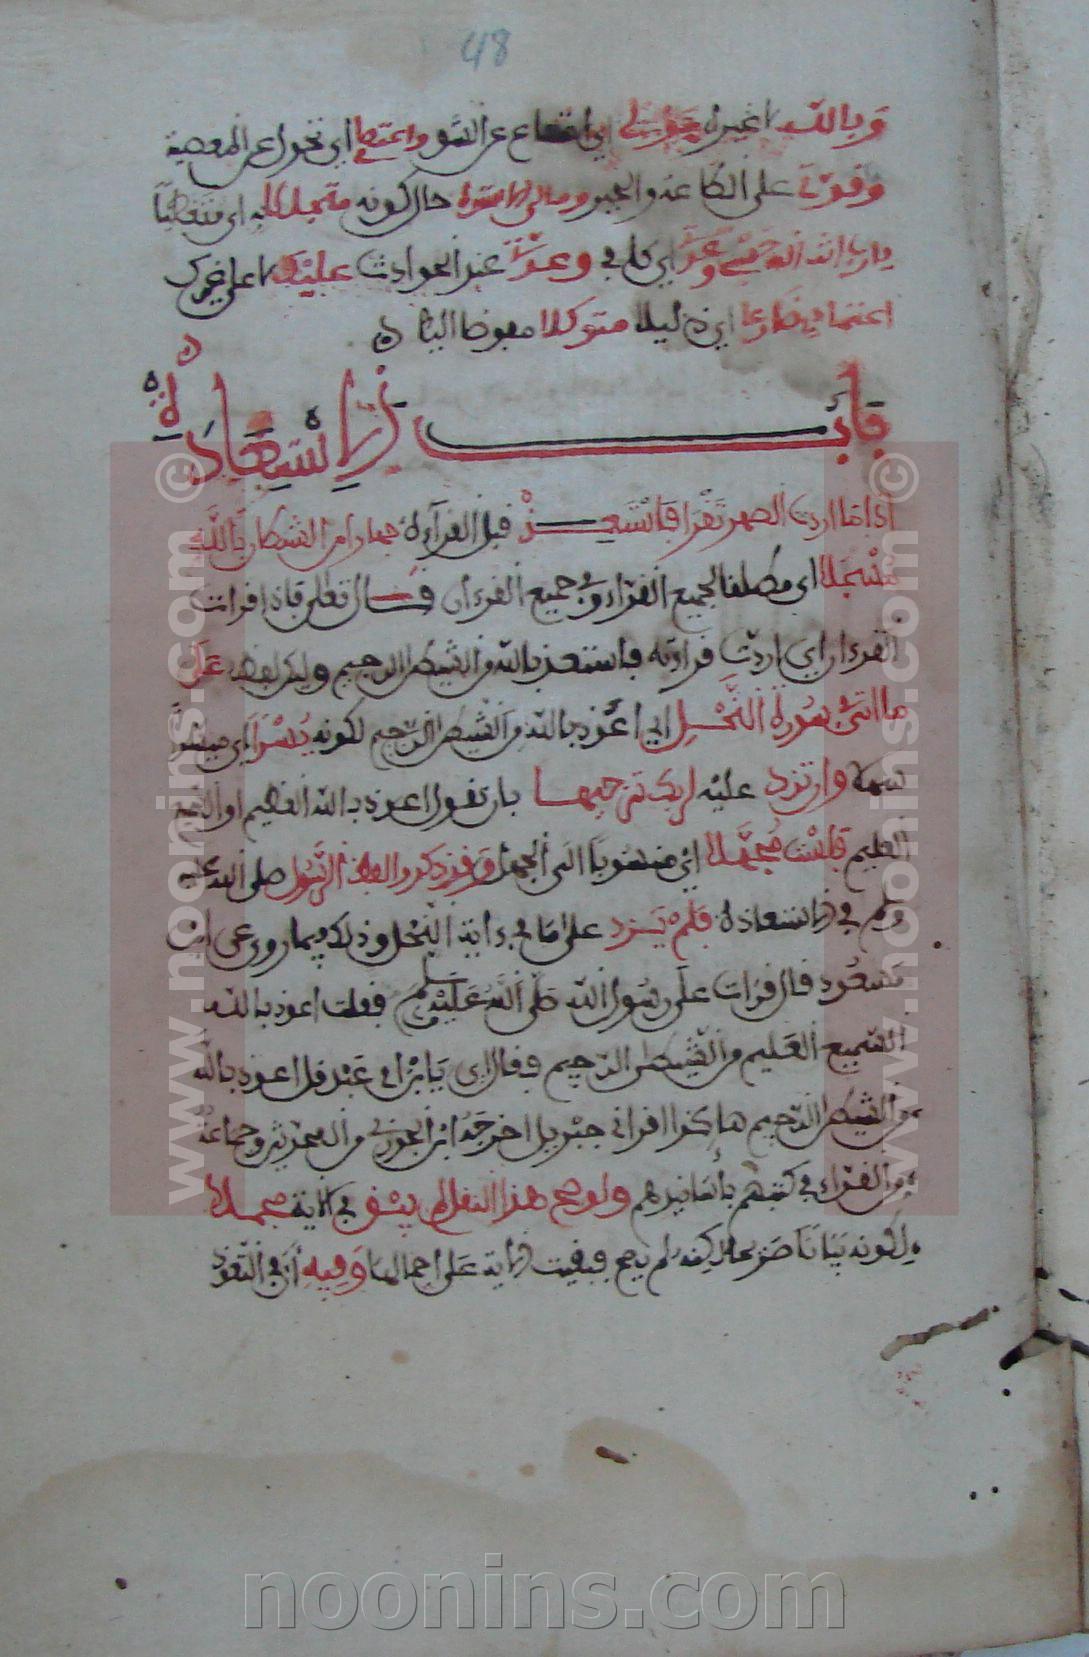 48
وبالله لا غيره حولي اي امتناع عن السوء واعتصامي اي تحولي عن المعصية
وقوتي على الطاعة والخير ومالي الا ستره حال كونه متجللا به اي متغطيا
يا رب انت الله حسبي وعدتي اي كافي وعدتي عند الحوادث عليك لا على غيرك
اعتمادي ضارعا اي ذليلا متوكلا مفوضا اليك
باب الاستعاذة
اذا ما اردت الدهر تقرا فاستعذ قبل القراءة جهارا من الشيطان بالله
مسجلا اي مطلقا لجميع القراء وفي جميع القرءان قال تعالى فاذا قرات
القرءان اي اردت قراءته فاستعذ بالله من الشيطن الرجيم وليكن لفظه على
ما اتى في سورة النحل اي اعوذ بالله من الشيطن الرجيم لكونه يسرا اي ميسرا
سهلا وان تزد عليه لربك تنزيها بان تقول اعوذ بالله العظيم او السميع
العليم فلست مجهلا اي منسوبا الى الجهل وقد ذكروا لفظ الرسول صلى الله عليه
وسلم في الاستعاذة فلم يزد على ما في ءاية النحل وذلك فيما روي عن ابن
مسعود قال قرات على رسول الله صلى الله عليه وسلم فقلت اعوذ بالله
السميع العليم من الشيطن الرجيم فقال لي يا ابن ام عبد قل اعوذ بالله
من الشيطن الرجيم هاكذا اقراني جبريل اخرجه ابن الجوزي من المحدثين وجماعة
من القراء في كتبهم بأسانيدهم ولو صح هذا النقل لم يبق في الاية مجملا
لكونه بيانا صريحا لكنه لم يصح فبقيت الاية على اجمالها وفيه أي في التعوذ
www.noonins.com ©
www.noonins.com ©
noonins.com